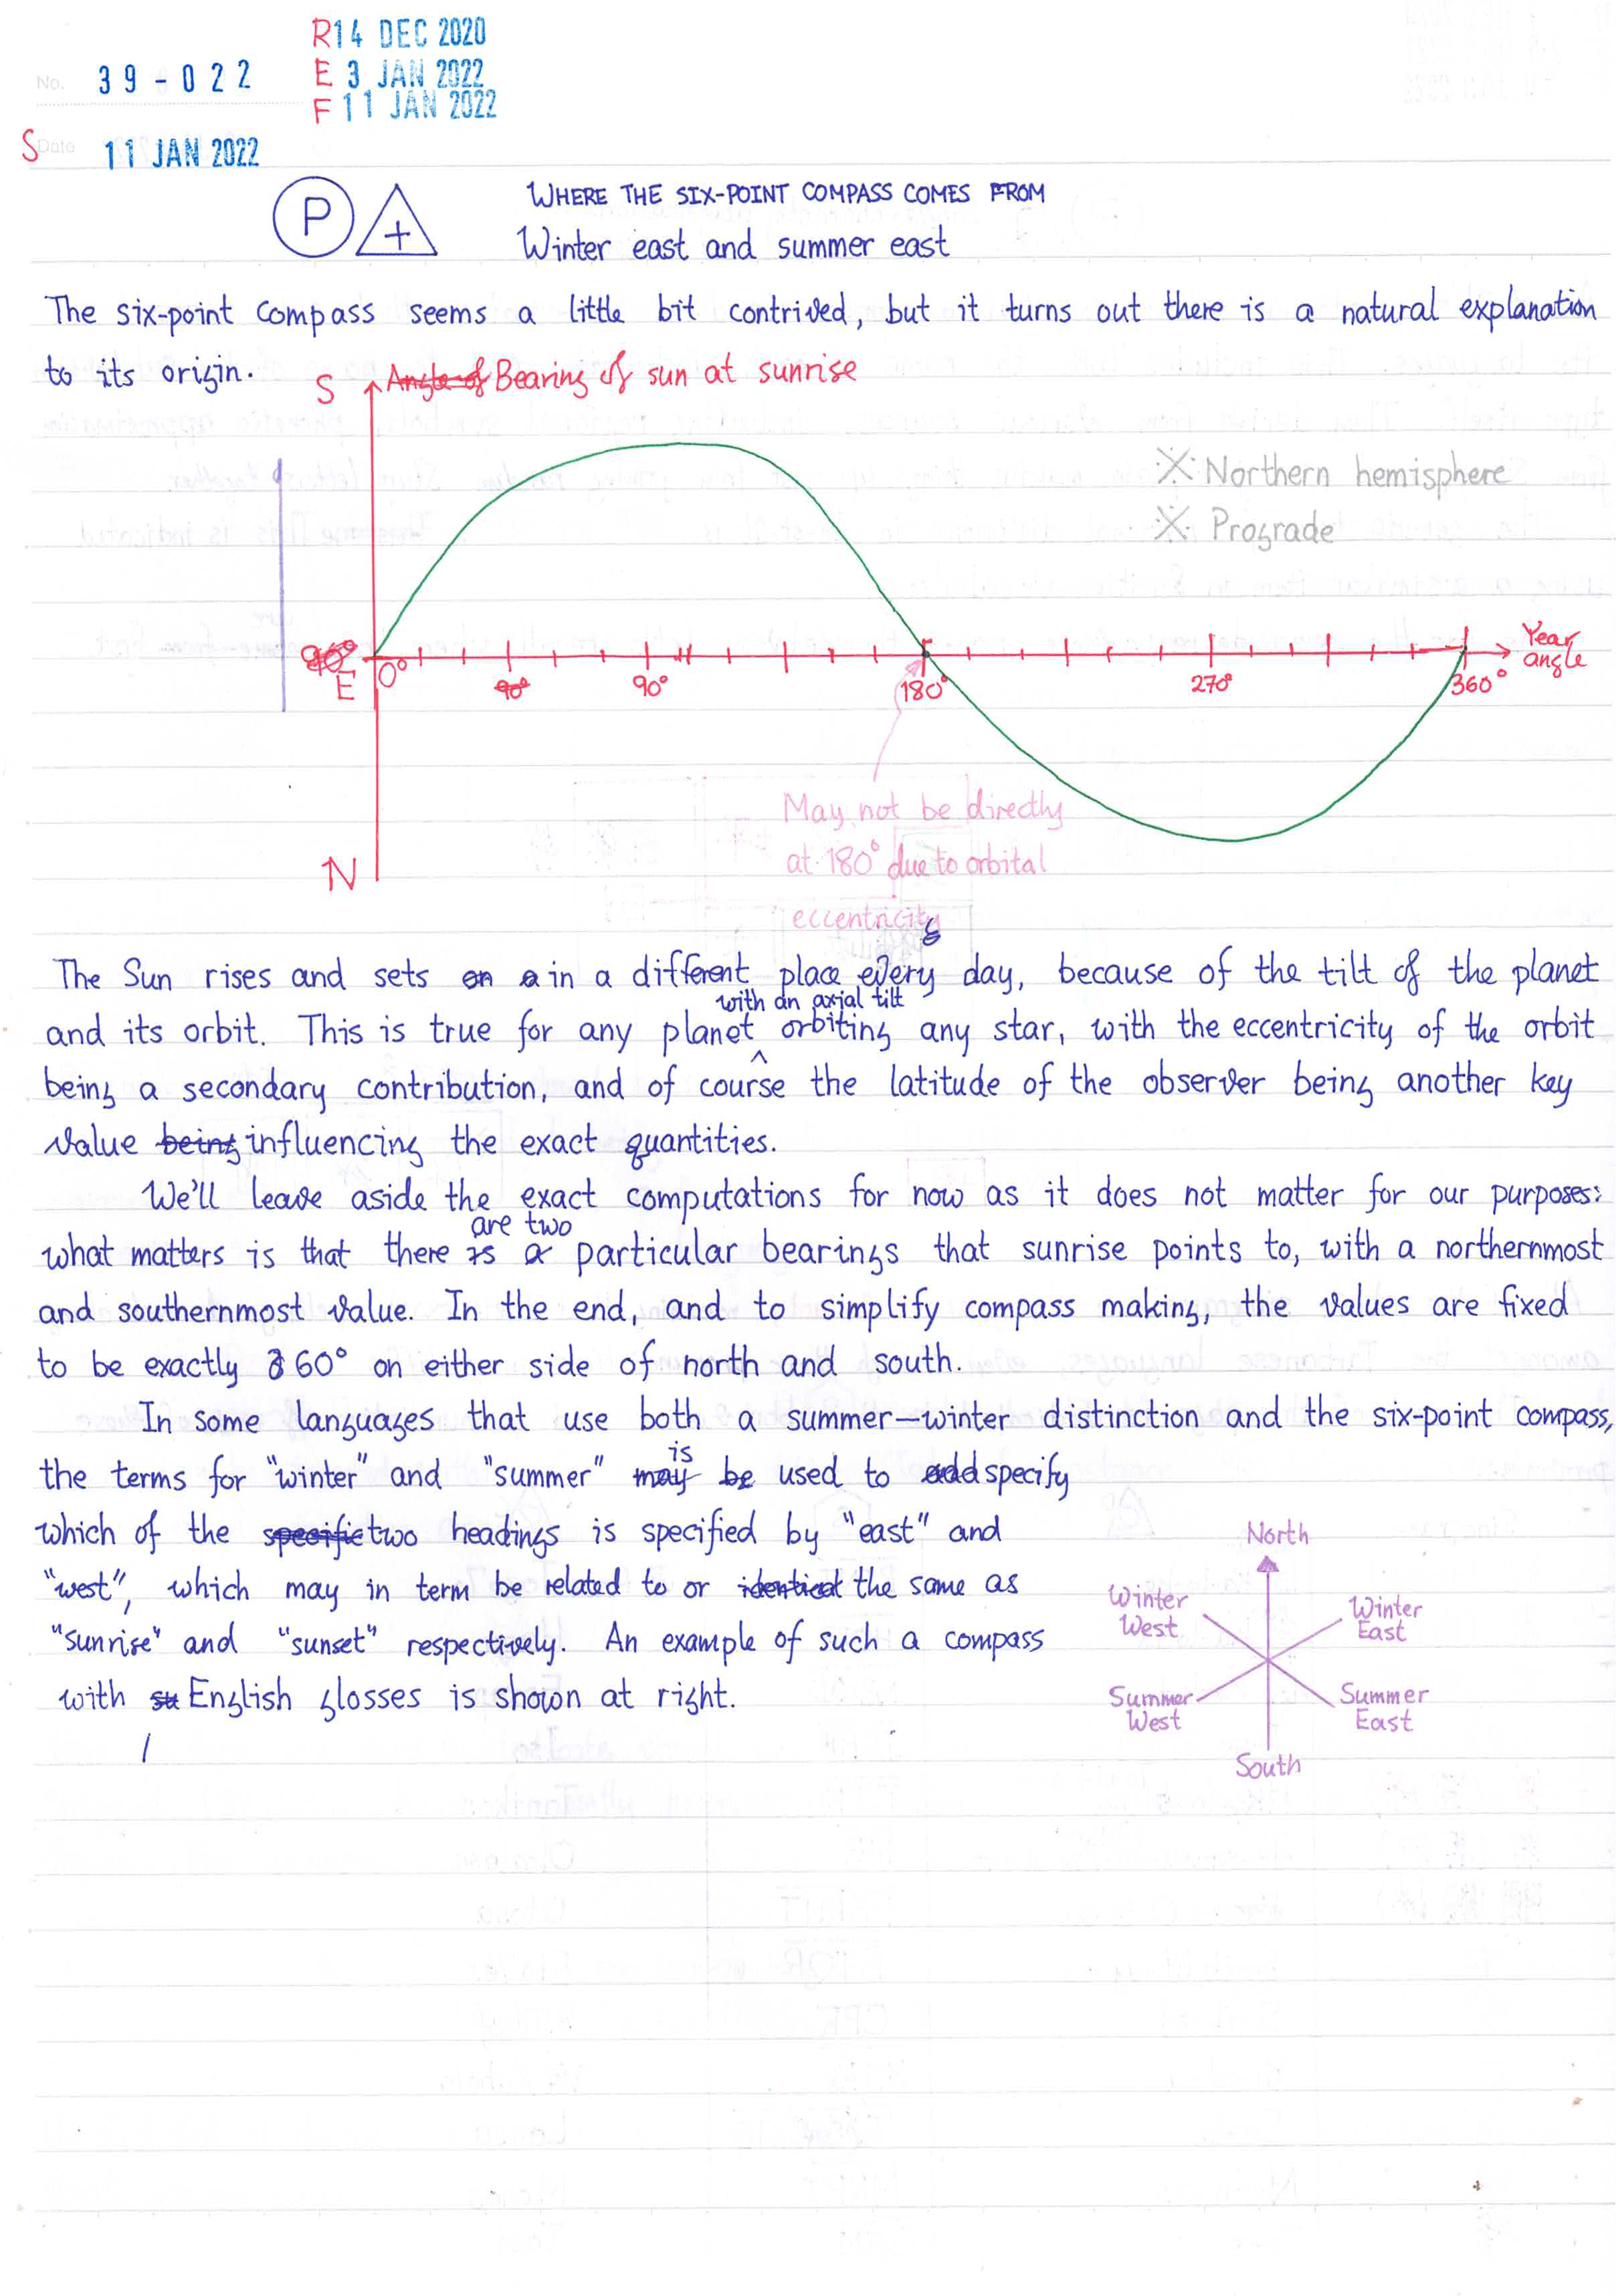 R14 DEC 2020
No. 39-022
E 3 JAN 2022
F11 JAN 2022
S Date 11 JAN 2022
P + WHERE THE SIX-POINT COMPASS COMES FROM
Winter east and summer east
The six-point compass seems a little bit contrived, but it turns out there is a natural explanation
to its origin.
S Angle of Bearing of sun at sunrise
※ Northern hemisphere
※ Prograde
90°
E
0°
90°
90°
180°
270°
360°
Year
angle
N
May not be directly
at 180° due to orbital
eccentricity
The Sun rises and sets on a in a different place every day, because of the tilt of the planet
with an axial tilt
and its orbit. This is true for any planet ^ orbiting any star, with the eccentricity of the orbit
being a secondary contribution, and of course the latitude of the observer being another key
value being influencing the exact quantities.
We'll leave aside the exact computations for now as it does not matter for our purposes:
are two
what matters is that there is a particular bearings that sunrise points to, with a northernmost
and southernmost value. In the end, and to simplify compass making, the values are fixed
to be exactly 60° on either side of north and south.
In some languages that use both a summer–winter distinction and the six-point compass,
is
the terms for "winter" and "summer" may be used to add specify
which of the specific two headings is specified by "east" and
"west", which may in term be related to or identical the same as
"sunrise" and "sunset" respectively. An example of such a compass
with su English glosses is shown at right.
North
Winter
West
Winter
East
Summer
West
Summer
East
South